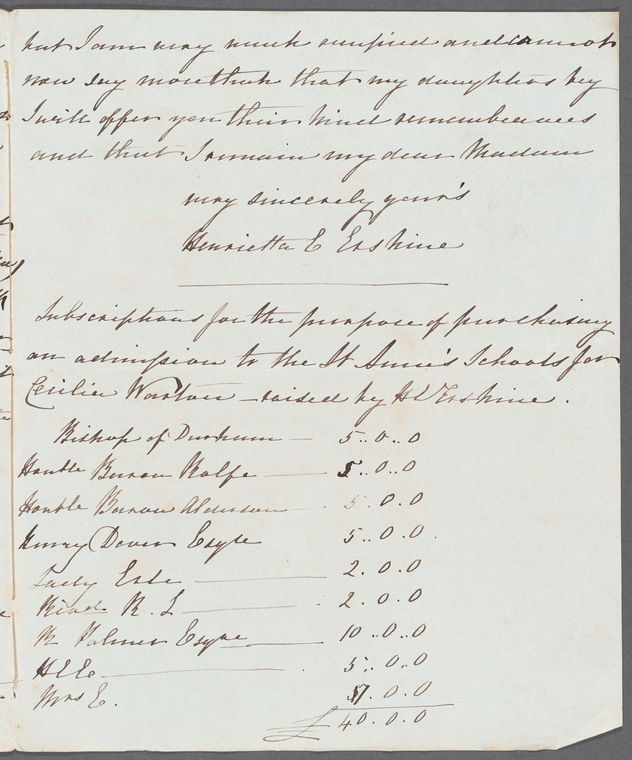 but I am very much surprised and cannot
now say more than that my daughters by
I will offer you their kind remembrances
and that I remain my dear Madam
very sincerely your's
Henrietta E Erskine
Subscriptions for the purpose of purchasing
an admission to the St Anne's Schools for
Cecilia Warton - raised by H E Erskine.
Bishop of Durham — 5..0..0
Honble Baron Rolfe — 5..0..0
Honble Baron Alderson . 5.0.0
Henry Dover Esqre 5..0.0.
Lady Erle — 2.0.0
Revd R. L — 2.0.0
R Palmer Esqre — 10..0..0
H E E — 5..0.0
Mrs E. 1.0.0
£ 40.0.0